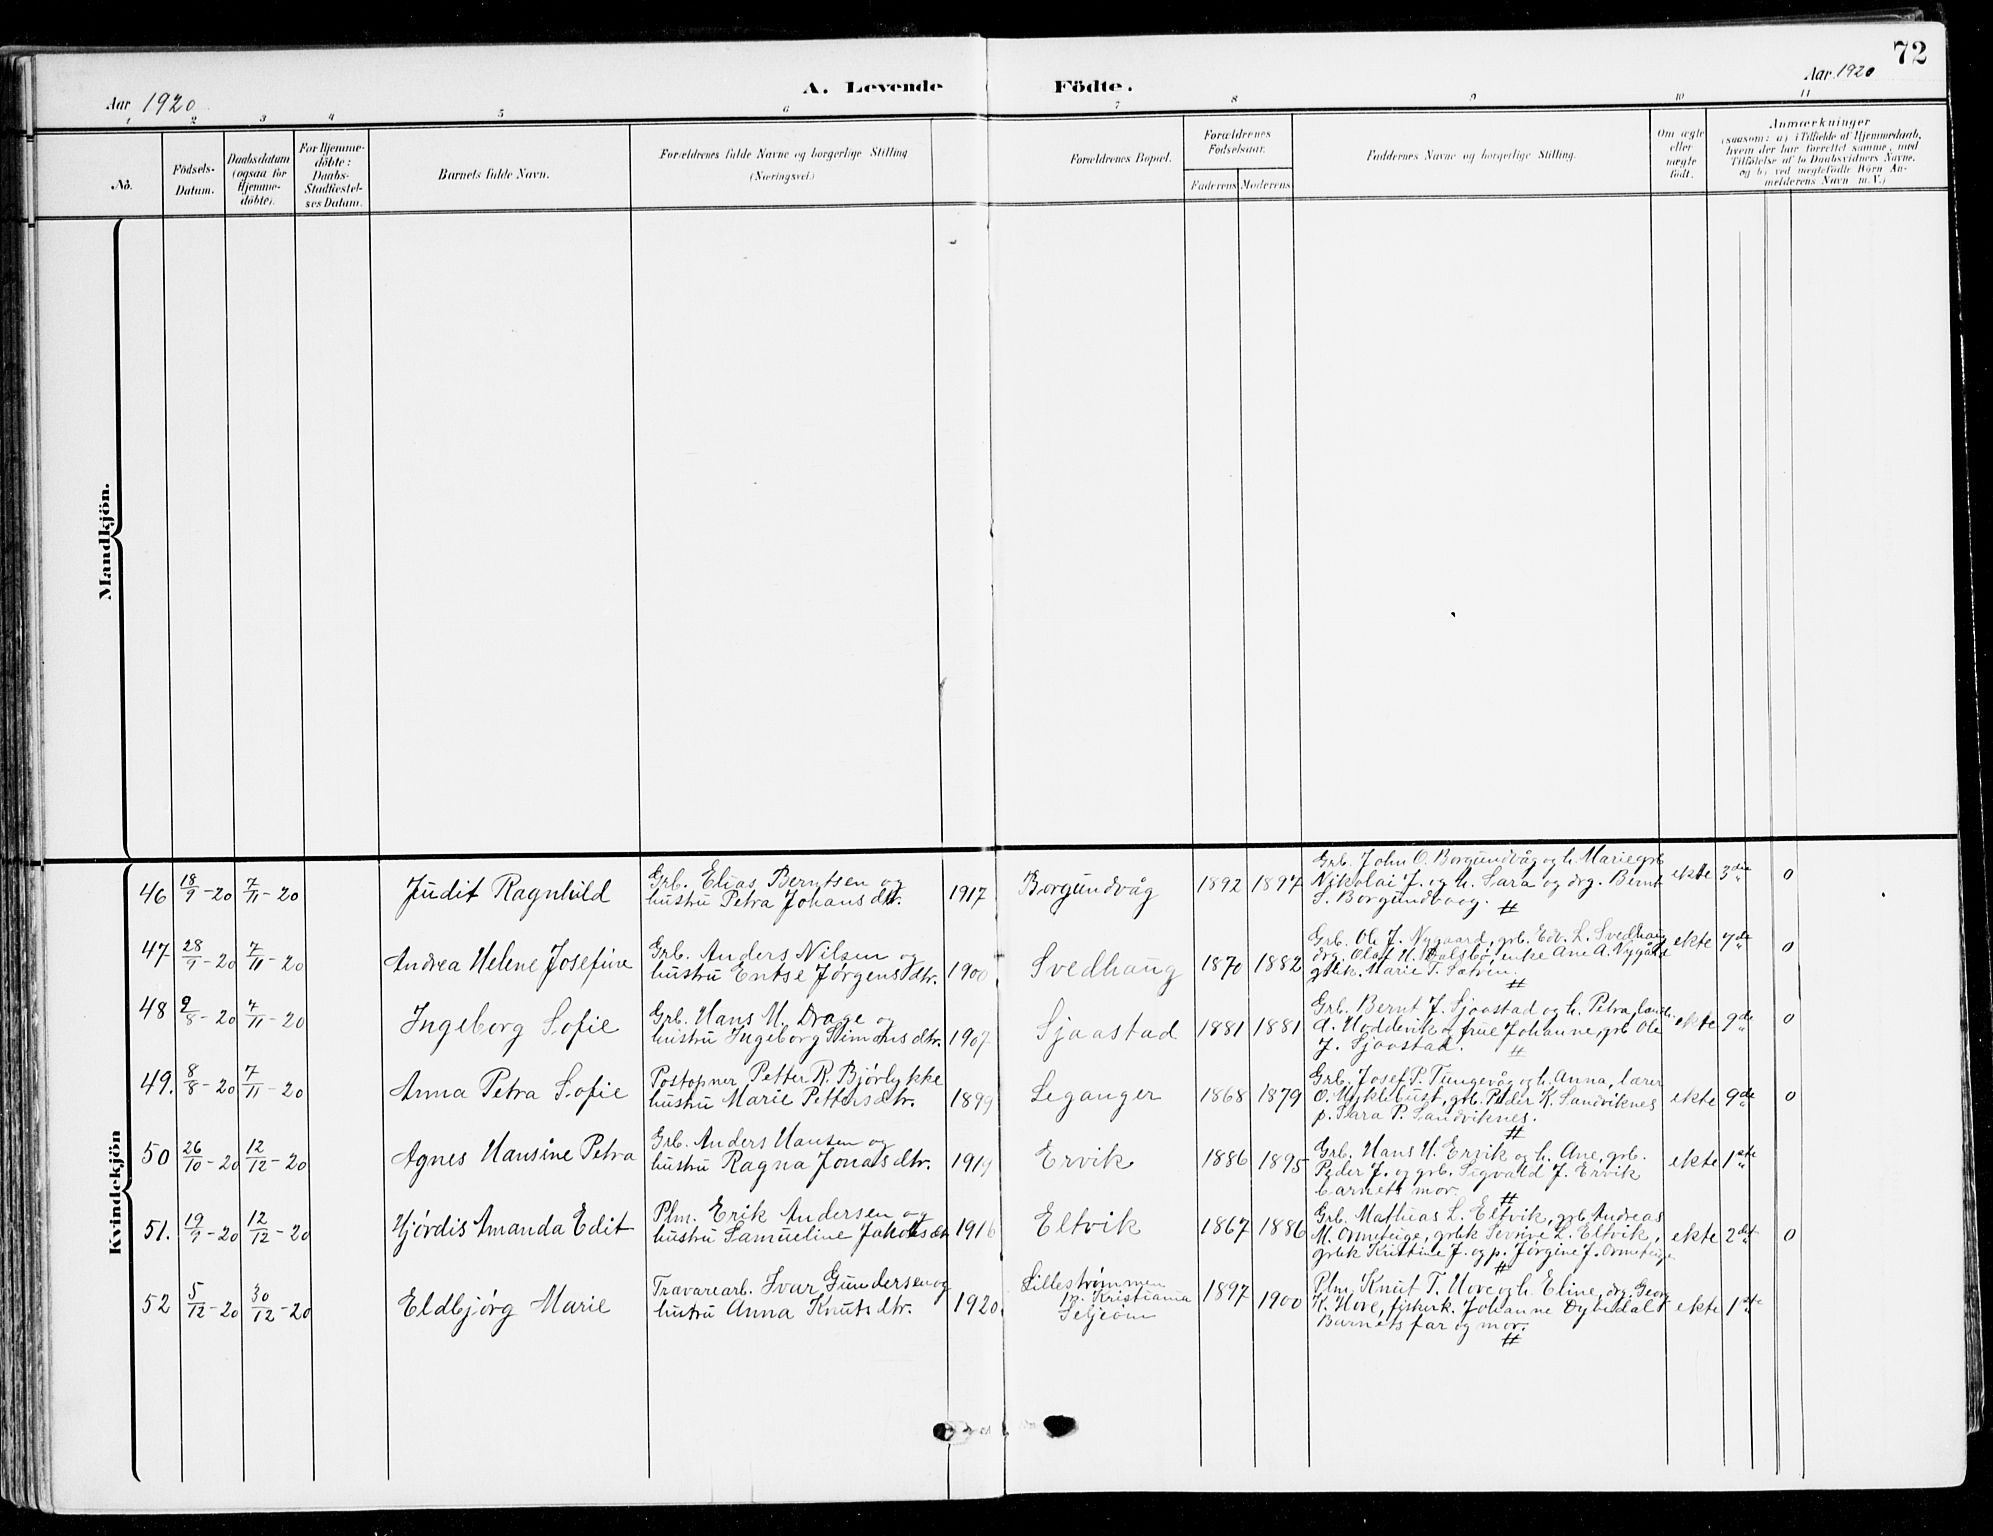 72
Aar 1920
A. Levende Födte.
Aar 1920
1 2 3 4 5 6 7 8 9 10 11
No.
Födsels-
Datum.
Daabsdatum
(ogsaa for
Hjemme-
döbte).
For Hjemme-
döbte:
Daabs-
Stadfæstel-
ses Datum.
Barnets fulde Navn.
Forældrenes fulde Navne og borgerlige Stilling
(Næringsvei.)
Forældrenes Bopæl.
Forældrenes
Födselsaar.
Faderens Moderens
Faddernes Navne og borgerlige Stilling.
Om ægte
eller
uægte
født.
Anmærkninger
(saasom: a) i Tilfælde af Hjemmedaab,
hvem der har forrettet samme, med
Tilföielse af to Daabsvidners Navne,
og b) ved uægtefödte Börn An-
melderens Navn m. V.)
Mandkjön.
Kvindekjön
46 18/9-20 7/11-20 Judit Ragnhild
Grb. Elias Berntsen og
hustru Petra Johansdtr. 1917
Borgundvåg 1892 1897
Grb. John O. Borgundvåg og h. Marie grb
Nikolai J. og h. Sara og drg. Bernt
S. Borgundvaag. #
ekte 3die 0
47 28/9-20 7/11-20 Andrea Helene Josefine
Grb. Anders Nilsen og
hustru Entse Jørgensdtr. 1900
Svedhaug 1870 1882
Grb. Ole J. Nygaard, grb. Edv. L. Svedhaug
drg. Olaf H. Dalsbø, enke Ane A. Nygård
grbk. Marie T. Sætren. #
ekte 7de 0
48 9/8-20 7/11-20 Ingeborg Sofie
Grb. Hans M. Drage og
hustru Ingeborg Simonsdtr. 1907
Sjaastad 1881 1881
Grb. Bernt J. Sjaastad og h. Petra, landh.
A. Hoddevik og frue Johanne, grb Ole
J. Sjaastad. #
ekte 9de 0
49. 8/8-20 7/11-20 Anna Petra Sofie
Postopner Petter R. Bjørlykke
hustru Marie Pettersdtr. 1899
Leganger 1868 1879
Grb. Josef P. Tungevåg og h. Anna, lærer
O. Myklebust, grb. Peder K. Sandviknes
p. Sara P. Sandviknes. #
ekte 9de 0
50 26/10-20 12/12-20 Agnes Hansine Petra
Grb. Anders Hansen og
hustru Ragna Jonasdtr. 1919
Ervik 1886 1895
Grb. Hans H. Ervik og h. Ane, grb.
Peder J. og grb. Sigvald J. Ervik
barnets mor. #
ekte 1ste
51. 19/9-20 12/12-20 Hjørdis Amanda Edit
Plm. Erik Andersen og
hustru Samueline Jakobsdtr 1916
Eltvik 1867 1886
Grb. Mathias L. Eltvik, grb Andreas
M. Ormeteige, grbk Severe L. Eltvik,
grbk Kristine J. og p. Jørgine J. Ormeteige
#
ekte 2det 0
52 5/12-20 30/12-20 Eldbjørg Marie
Travarearb. Ivar Gundersen og
hustru Anna Knutsdtr. 1920.
Lillestrømmen
p. Kristiania
Seljeøin 1897 1900
Plm. Knut T. Hove og h. Eline, drg. Georg
K. Hove, fiskerk. Johanne Dybedal
Barnets far og mor. #
ekte 1ste